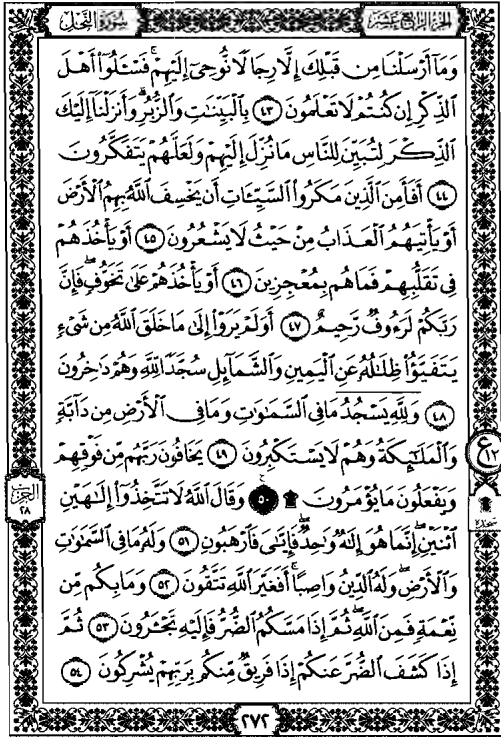 الجزء الرابع عشر
سورة النحل
وَمَآ أَرْسَلْنَا مِن قَبْلِكَ إِلَّا رِجَالًا نُّوحِىٓ إِلَيْهِمْ ۚ فَسْـَٔلُوٓا۟ أَهْلَ
ٱلذِّكْرِ إِن كُنتُمْ لَا تَعْلَمُونَ ٤٣ بِٱلْبَيِّنَـٰتِ وَٱلزُّبُرِ ۗ وَأَنزَلْنَآ إِلَيْكَ
ٱلذِّكْرَ لِتُبَيِّنَ لِلنَّاسِ مَا نُزِّلَ إِلَيْهِمْ وَلَعَلَّهُمْ يَتَفَكَّرُونَ
٤٤ أَفَأَمِنَ ٱلَّذِينَ مَكَرُوا۟ ٱلسَّيِّـَٔاتِ أَن يَخْسِفَ ٱللَّهُ بِهِمُ ٱلْأَرْضَ
أَوْ يَأْتِيَهُمُ ٱلْعَذَابُ مِنْ حَيْثُ لَا يَشْعُرُونَ ٤٥ أَوْ يَأْخُذَهُمْ
فِى تَقَلُّبِهِمْ فَمَا هُم بِمُعْجِزِينَ ٤٦ أَوْ يَأْخُذَهُمْ عَلَىٰ تَخَوُّفٍ فَإِنَّ
رَبَّكُمْ لَرَءُوفٌ رَّحِيمٌ ٤٧ أَوَلَمْ يَرَوْا۟ إِلَىٰ مَا خَلَقَ ٱللَّهُ مِن شَىْءٍ
يَتَفَيَّؤُا۟ ظِلَـٰلُهُۥ عَنِ ٱلْيَمِينِ وَٱلشَّمَآئِلِ سُجَّدًا لِّلَّهِ وَهُمْ دَٰخِرُونَ
٤٨ وَلِلَّهِ يَسْجُدُ مَا فِى ٱلسَّمَـٰوَٰتِ وَمَا فِى ٱلْأَرْضِ مِن دَآبَّةٍ
وَٱلْمَلَـٰٓئِكَةُ وَهُمْ لَا يَسْتَكْبِرُونَ ٤٩ يَخَافُونَ رَبَّهُم مِّن فَوْقِهِمْ
وَيَفْعَلُونَ مَا يُؤْمَرُونَ ۩ ٥٠ ۞ وَقَالَ ٱللَّهُ لَا تَتَّخِذُوٓا۟ إِلَـٰهَيْنِ
ٱثْنَيْنِ ۖ إِنَّمَا هُوَ إِلَـٰهٌ وَٰحِدٌ ۖ فَإِيَّـٰىَ فَٱرْهَبُونِ ٥١ وَلَهُۥ مَا فِى ٱلسَّمَـٰوَٰتِ
وَٱلْأَرْضِ وَلَهُ ٱلدِّينُ وَاصِبًا ۚ أَفَغَيْرَ ٱللَّهِ تَتَّقُونَ ٥٢ وَمَا بِكُم مِّن
نِّعْمَةٍ فَمِنَ ٱللَّهِ ۖ ثُمَّ إِذَا مَسَّكُمُ ٱلضُّرُّ فَإِلَيْهِ تَجْـَٔرُونَ ٥٣ ثُمَّ
إِذَا كَشَفَ ٱلضُّرَّ عَنكُمْ إِذَا فَرِيقٌ مِّنكُم بِرَبِّهِمْ يُشْرِكُونَ ٥٤
ع ١٢
سجدة
الحزب
٢٨
٢٧٢